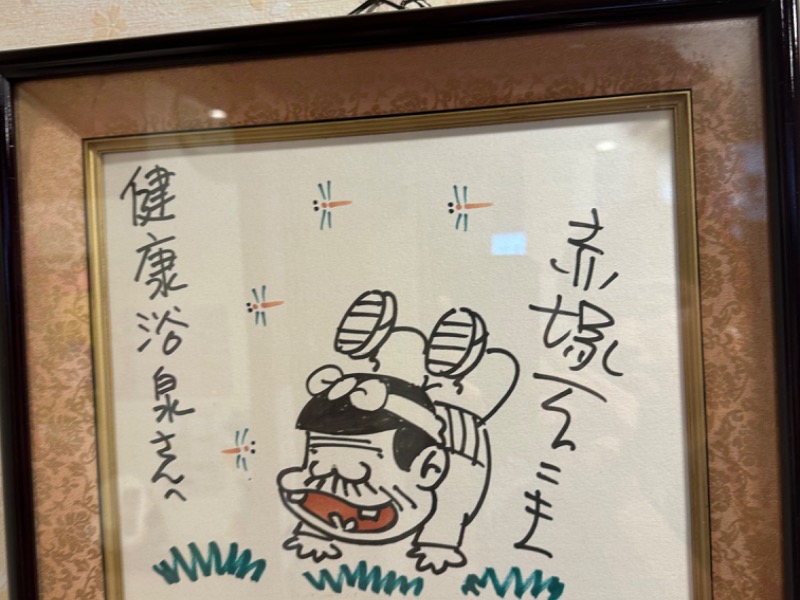 赤塚不二夫
健康浴泉さんへ